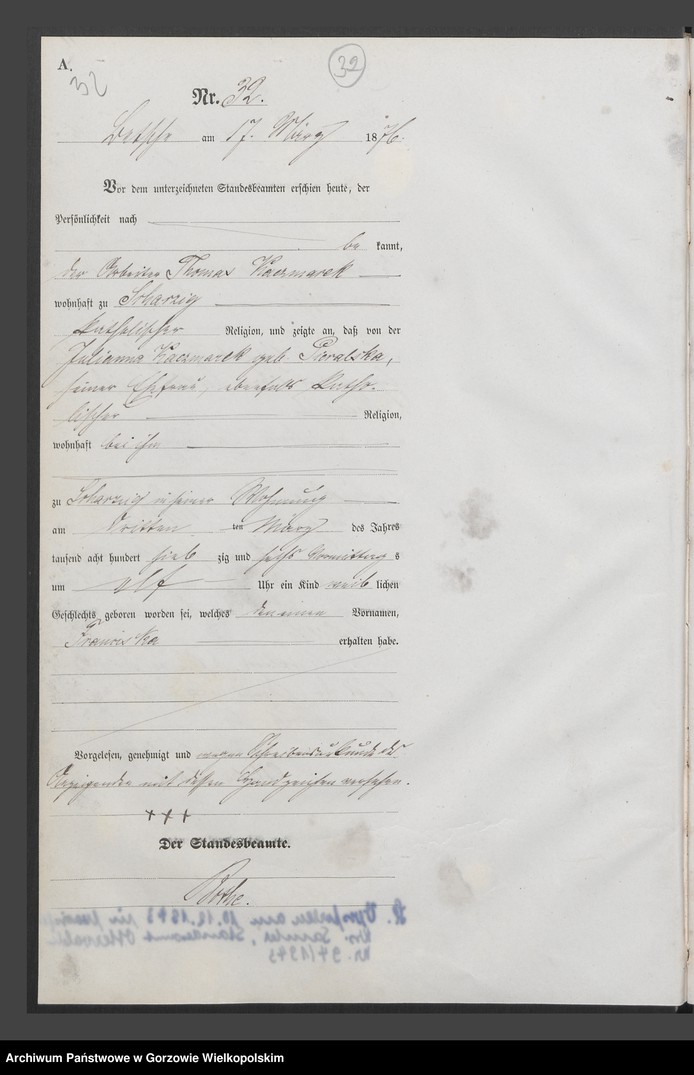 A.
32
32
Nr. 32.
Betsche am 17. März 1876.
Vor dem unterzeichneten Standesbeamten erschien heute, der
Persönlichkeit nach
be kannt,
der Arbeiter Thomas Kaczmarek
wohnhaft zu Scharzig
katholischer Religion, und zeigte an, daß von der
Julianna Kaczmarek geb.
seiner Ehefrau, ebenfalls katho-
lischer Religion,
wohnhaft bei ihm
zu Scharzig in seiner Wohnung
am dritten ten März des Jahres
tausend acht hundert sieb zig und sechs Vormittag s
um elf Uhr ein Kind weib lichen
Geschlechts geboren worden sei, welches den einen Vornamen,
Franciska erhalten habe.
Vorgelesen, genehmigt und wegen Schreibensunkunde des
Anzeigenden mit dessen Handzeichen versehen.
+++
Der Standesbeamte.
Bothe.
Archiwum Państwowe w Gorzowie Wielkopolskim